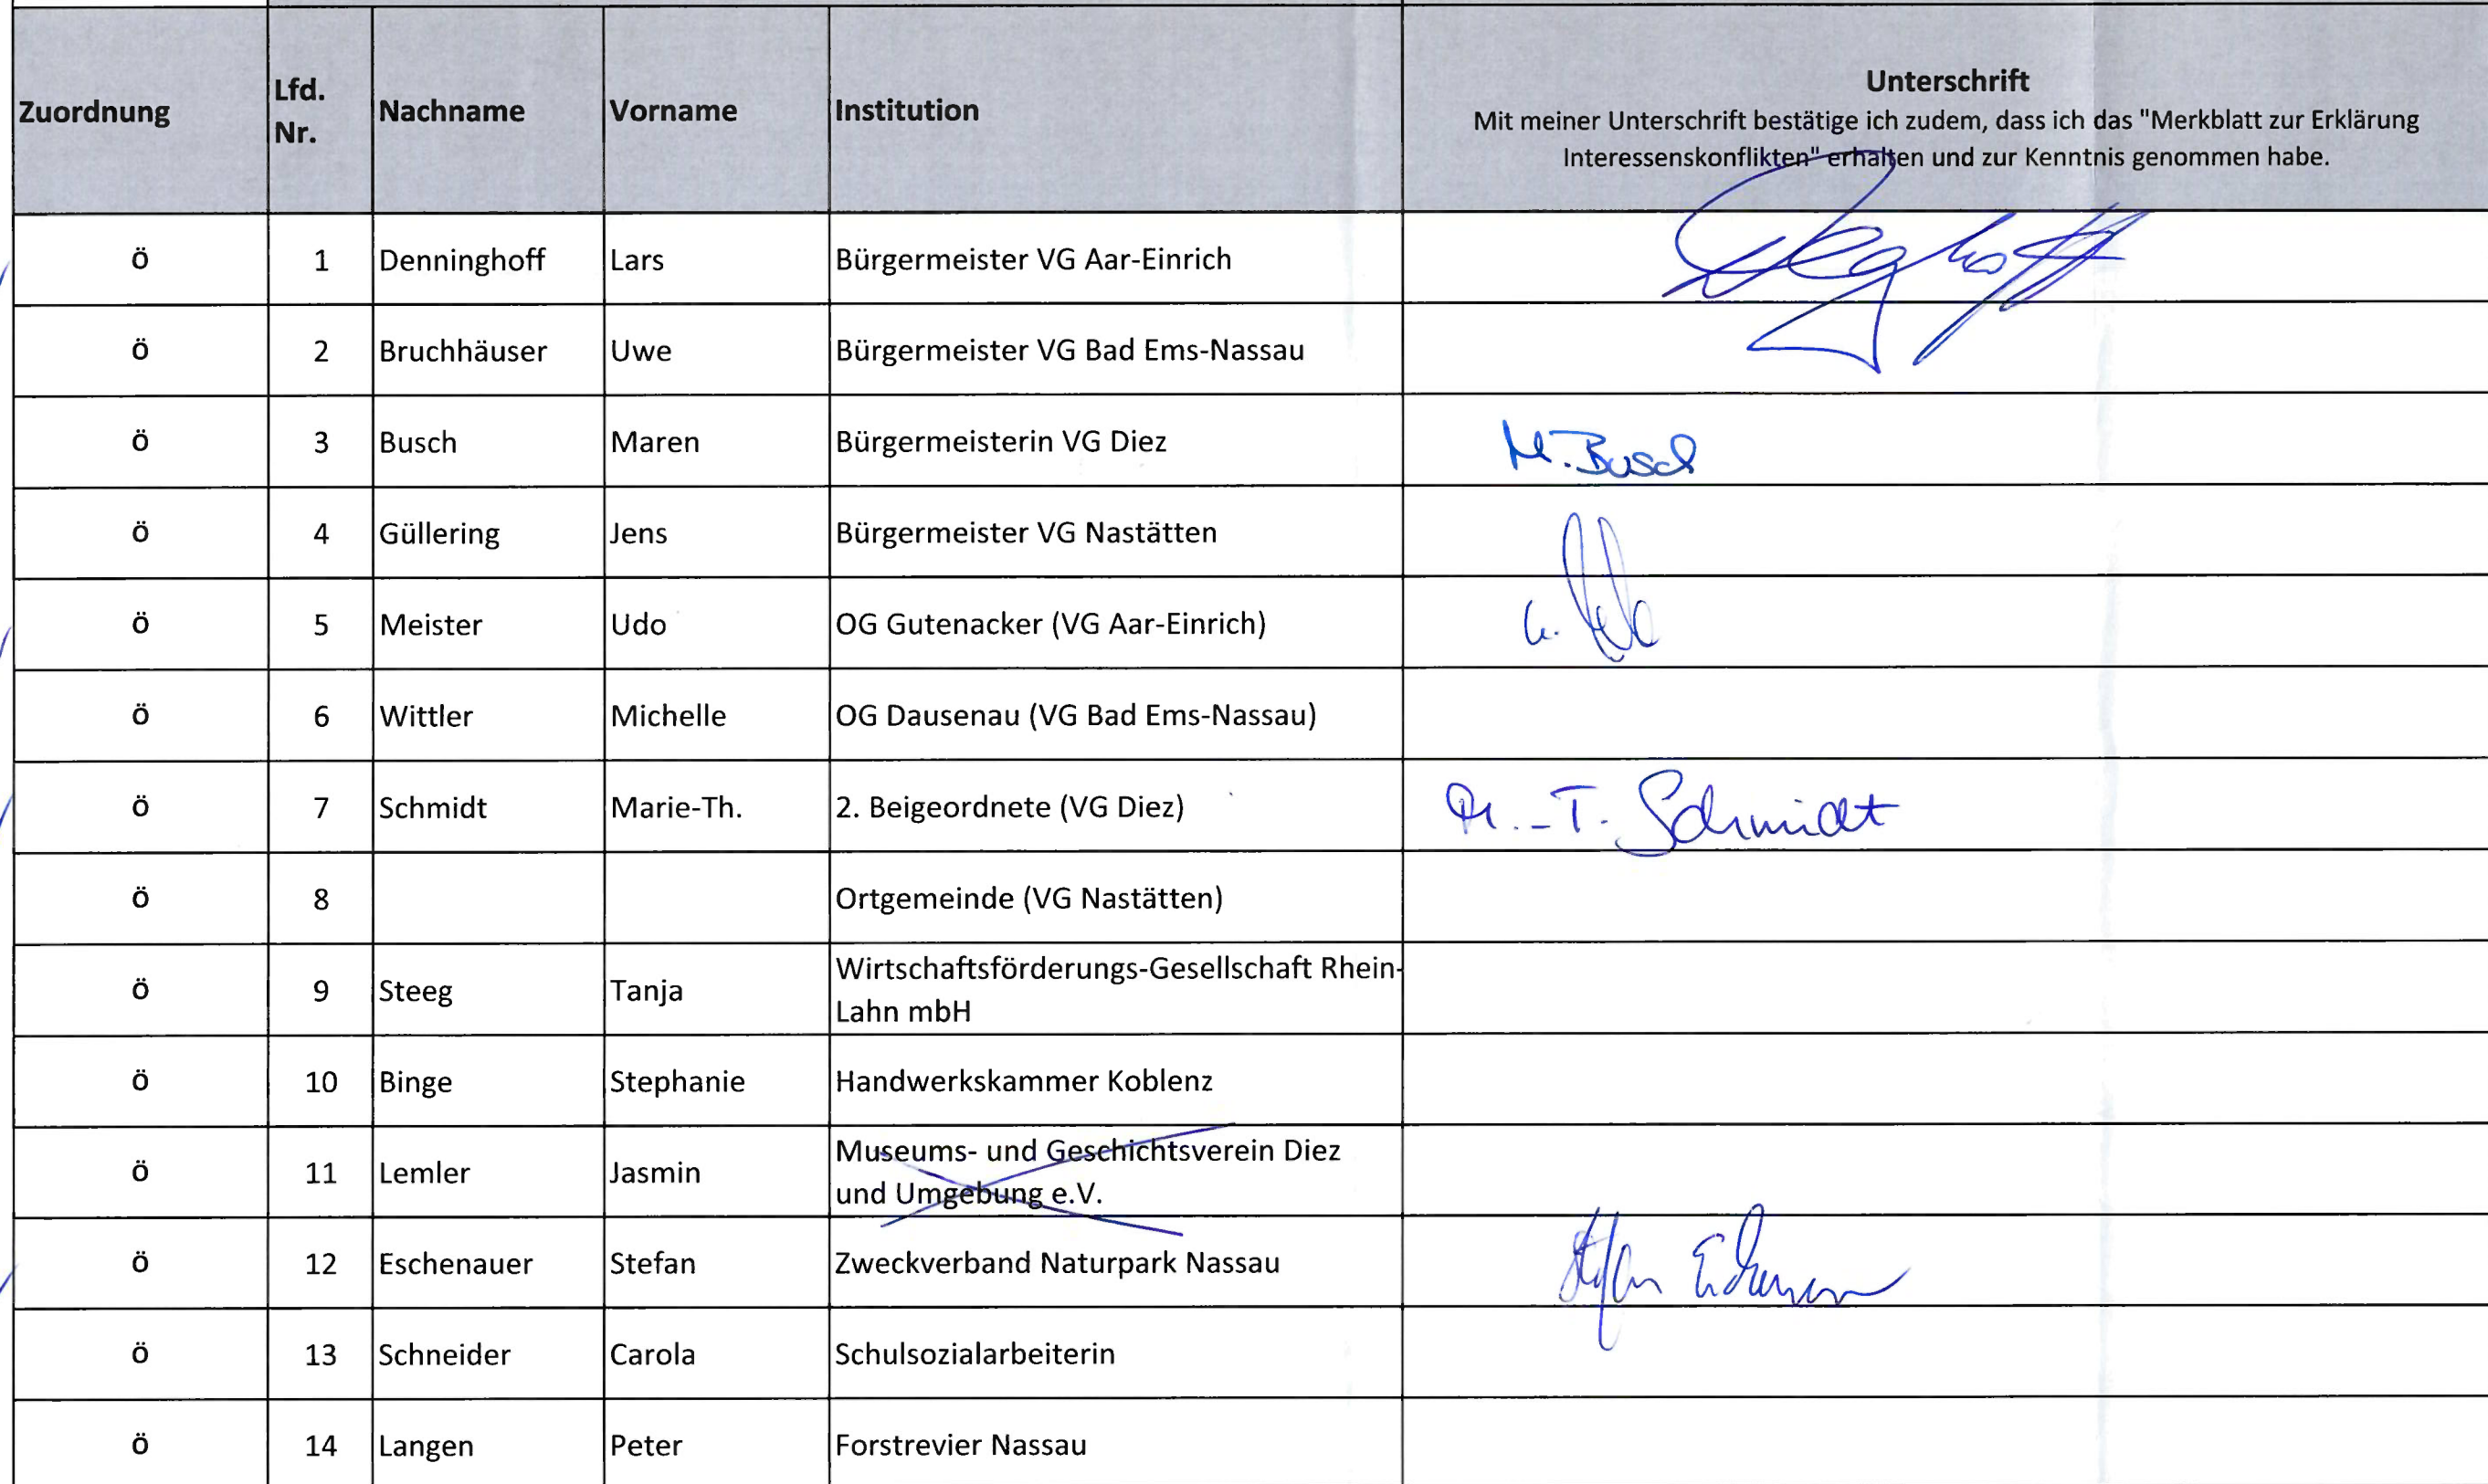 Zuordnung Lfd. Nr. Nachname Vorname Institution Unterschrift
Mit meiner Unterschrift bestätige ich zudem, dass ich das "Merkblatt zur Erklärung
Interessenskonflikten" erhalten und zur Kenntnis genommen habe.
ö 1 Denninghoff Lars Bürgermeister VG Aar-Einrich
ö 2 Bruchhäuser Uwe Bürgermeister VG Bad Ems-Nassau
ö 3 Busch Maren Bürgermeisterin VG Diez M. Busch
ö 4 Güllering Jens Bürgermeister VG Nastätten
ö 5 Meister Udo OG Gutenacker (VG Aar-Einrich)
ö 6 Wittler Michelle OG Dausenau (VG Bad Ems-Nassau)
ö 7 Schmidt Marie-Th. 2. Beigeordnete (VG Diez) M.-T. Schmidt
ö 8 Ortgemeinde (VG Nastätten)
ö 9 Steeg Tanja Wirtschaftsförderungs-Gesellschaft Rhein-
Lahn mbH
ö 10 Binge Stephanie Handwerkskammer Koblenz
ö 11 Lemler Jasmin Museums- und Geschichtsverein Diez
und Umgebung e.V.
ö 12 Eschenauer Stefan Zweckverband Naturpark Nassau Stefan Eschenauer
ö 13 Schneider Carola Schulsozialarbeiterin
ö 14 Langen Peter Forstrevier Nassau